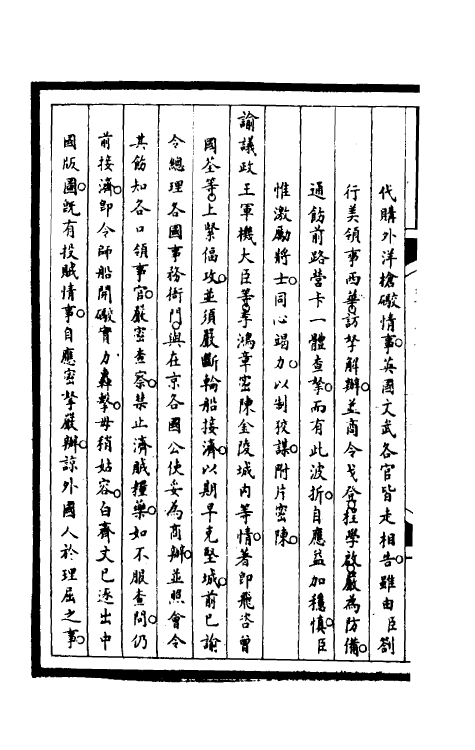 代購外洋槍礮情事。英國文武各官皆走相告。雖由臣劄
行美領事西華訪拏解辦。並商令戈登程學啟嚴為防備。
通飭前路營卡一體查拏。而有此波折。自應益加穩慎。臣
惟激勵將士。同心竭力。以制狡謀。附片密陳。
諭議政王軍機大臣等。李鴻章密陳金陵城內等情。著即飛咨曾
國荃等。上緊偪攻。並須嚴斷輪船接濟。以期早克堅城。前已諭
令總理各國事務衙門。與在京各國公使妥為商辦。並照會令
其飭知各口領事官。嚴密查察。禁止濟賊糧藥。如不服查問。仍
前接濟。即令師船開礮。實力轟擊。毋稍姑容。白齊文已逐出中
國版圖。既有投賊情事。自應密拏嚴辦。諒外國人於理屈之事。